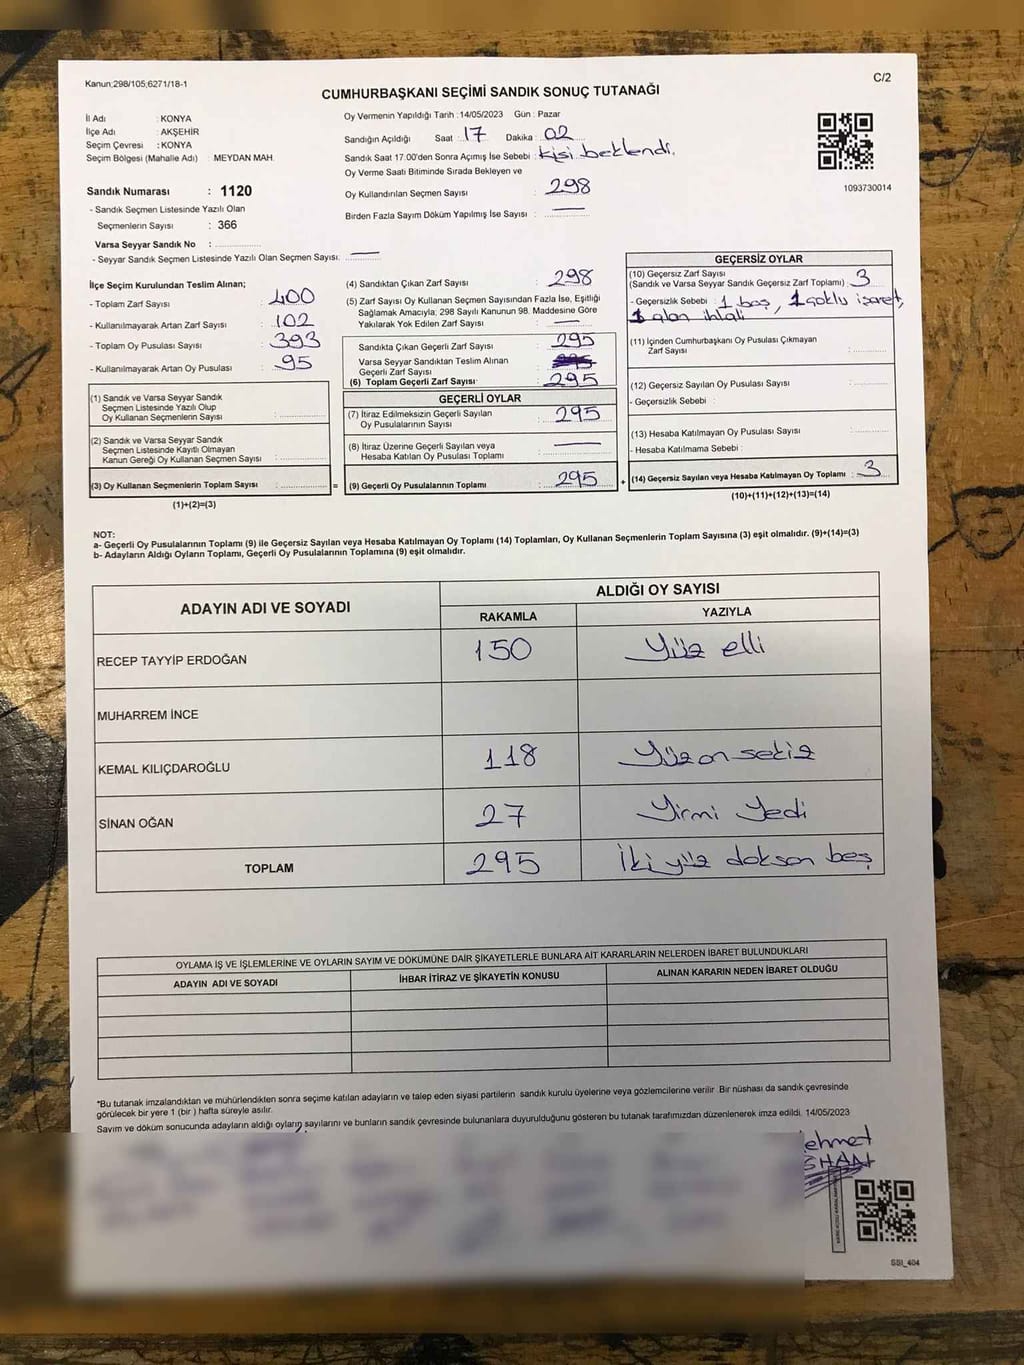 Kanun;298/105;6271/18-1
C/2
CUMHURBAŞKANI SEÇİMİ SANDIK SONUÇ TUTANAĞI
İl Adı : KONYA
İlçe Adı : AKŞEHİR
Seçim Çevresi : KONYA
Seçim Bölgesi (Mahalle Adı) : MEYDAN MAH.
Sandık Numarası : 1120
- Sandık Seçmen Listesinde Yazılı Olan
Seçmenlerin Sayısı : 366
Varsa Seyyar Sandık No :
- Seyyar Sandık Seçmen Listesinde Yazılı Olan Seçmen Sayısı:
Oy Vermenin Yapıldığı Tarih :14/05/2023 Gün : Pazar
Sandığın Açıldığı Saat : 17 Dakika : 02
Sandık Saat 17.00'den Sonra Açımış İse Sebebi : kişi beklendi.
Oy Verme Saati Bitiminde Sırada Bekleyen ve
Oy Kullandırılan Seçmen Sayısı : 298
Birden Fazla Sayım Döküm Yapılmış İse Sayısı :
1093730014
İlçe Seçim Kurulundan Teslim Alınan;
- Toplam Zarf Sayısı : 400
- Kullanılmayarak Artan Zarf Sayısı : 102
- Toplam Oy Pusulası Sayısı : 393
- Kullanılmayarak Artan Oy Pusulası : 95
(1) Sandık ve Varsa Seyyar Sandık
Seçmen Listesinde Yazılı Olup
Oy Kullanan Seçmenlerin Sayısı :
(2) Sandık ve Varsa Seyyar Sandık
Seçmen Listesinde Kayıtlı Olmayan
Kanun Gereği Oy Kullanan Seçmen Sayısı :
(3) Oy Kullanan Seçmenlerin Toplam Sayısı : =
(1)+(2)=(3)
(4) Sandıktan Çıkan Zarf Sayısı : 298
(5) Zarf Sayısı Oy Kullanan Seçmen Sayısından Fazla İse, Eşitliği
Sağlamak Amacıyla; 298 Sayılı Kanunun 98. Maddesine Göre
Yakılarak Yok Edilen Zarf Sayısı :
Sandıkta Çıkan Geçerli Zarf Sayısı : 295
Varsa Seyyar Sandıktan Teslim Alınan
Geçerli Zarf Sayısı :
(6) Toplam Geçerli Zarf Sayısı : 295
GEÇERLİ OYLAR
(7) İtiraz Edilmeksizin Geçerli Sayılan
Oy Pusulalarının Sayısı : 295
(8) İtiraz Üzerine Geçerli Sayılan veya
Hesaba Katılan Oy Pusulası Toplamı :
(9) Geçerli Oy Pusulalarının Toplamı : 295 +
GEÇERSİZ OYLAR
(10) Geçersiz Zarf Sayısı
(Sandık ve Varsa Seyyar Sandık Geçersiz Zarf Toplamı) : 3
- Geçersizlik Sebebi : 1 boş, 1 çoklu işaret,
1 alan ihlali
(11) İçinden Cumhurbaşkanı Oy Pusulası Çıkmayan
Zarf Sayısı :
(12) Geçersiz Sayılan Oy Pusulası Sayısı :
- Geçersizlik Sebebi :
(13) Hesaba Katılmayan Oy Pusulası Sayısı :
- Hesaba Katılmama Sebebi :
(14) Geçersiz Sayılan veya Hesaba Katılmayan Oy Toplamı : 3
(10)+(11)+(12)+(13)=(14)
NOT:
a- Geçerli Oy Pusulalarının Toplamı (9) ile Geçersiz Sayılan veya Hesaba Katılmayan Oy Toplamı (14) Toplamları, Oy Kullanan Seçmenlerin Toplam Sayısına (3) eşit olmalıdır. (9)+(14)=(3)
b- Adayların Aldığı Oyların Toplamı, Geçerli Oy Pusulalarının Toplamına (9) eşit olmalıdır.
ADAYIN ADI VE SOYADI ALDIĞI OY SAYISI
RAKAMLA YAZIYLA
RECEP TAYYİP ERDOĞAN 150 Yüz elli
MUHARREM İNCE
KEMAL KILIÇDAROĞLU 118 Yüz on sekiz
SİNAN OĞAN 27 Yirmi Yedi
TOPLAM 295 İki yüz doksan beş
OYLAMA İŞ VE İŞLEMLERİNE VE OYLARIN SAYIM VE DÖKÜMÜNE DAİR ŞİKAYETLERLE BUNLARA AİT KARARLARIN NELERDEN İBARET BULUNDUKLARI
ADAYIN ADI VE SOYADI İHBAR İTİRAZ VE ŞİKAYETİN KONUSU ALINAN KARARIN NEDEN İBARET OLDUĞU
*Bu tutanak imzalandıktan ve mühürlendikten sonra seçime katılan adayların ve talep eden siyasi partilerin sandık kurulu üyelerine veya gözlemcilerine verilir .Bir nüshası da sandık çevresinde
görülecek bir yere 1 (bir ) hafta süreyle asılır.
Sayım ve döküm sonucunda adayların aldığı oyların sayılarını ve bunların sandık çevresinde bulunanlara duyurulduğunu gösteren bu tutanak tarafımızdan düzenlenerek imza edildi. 14/05/2023
ehmet
SSI_404